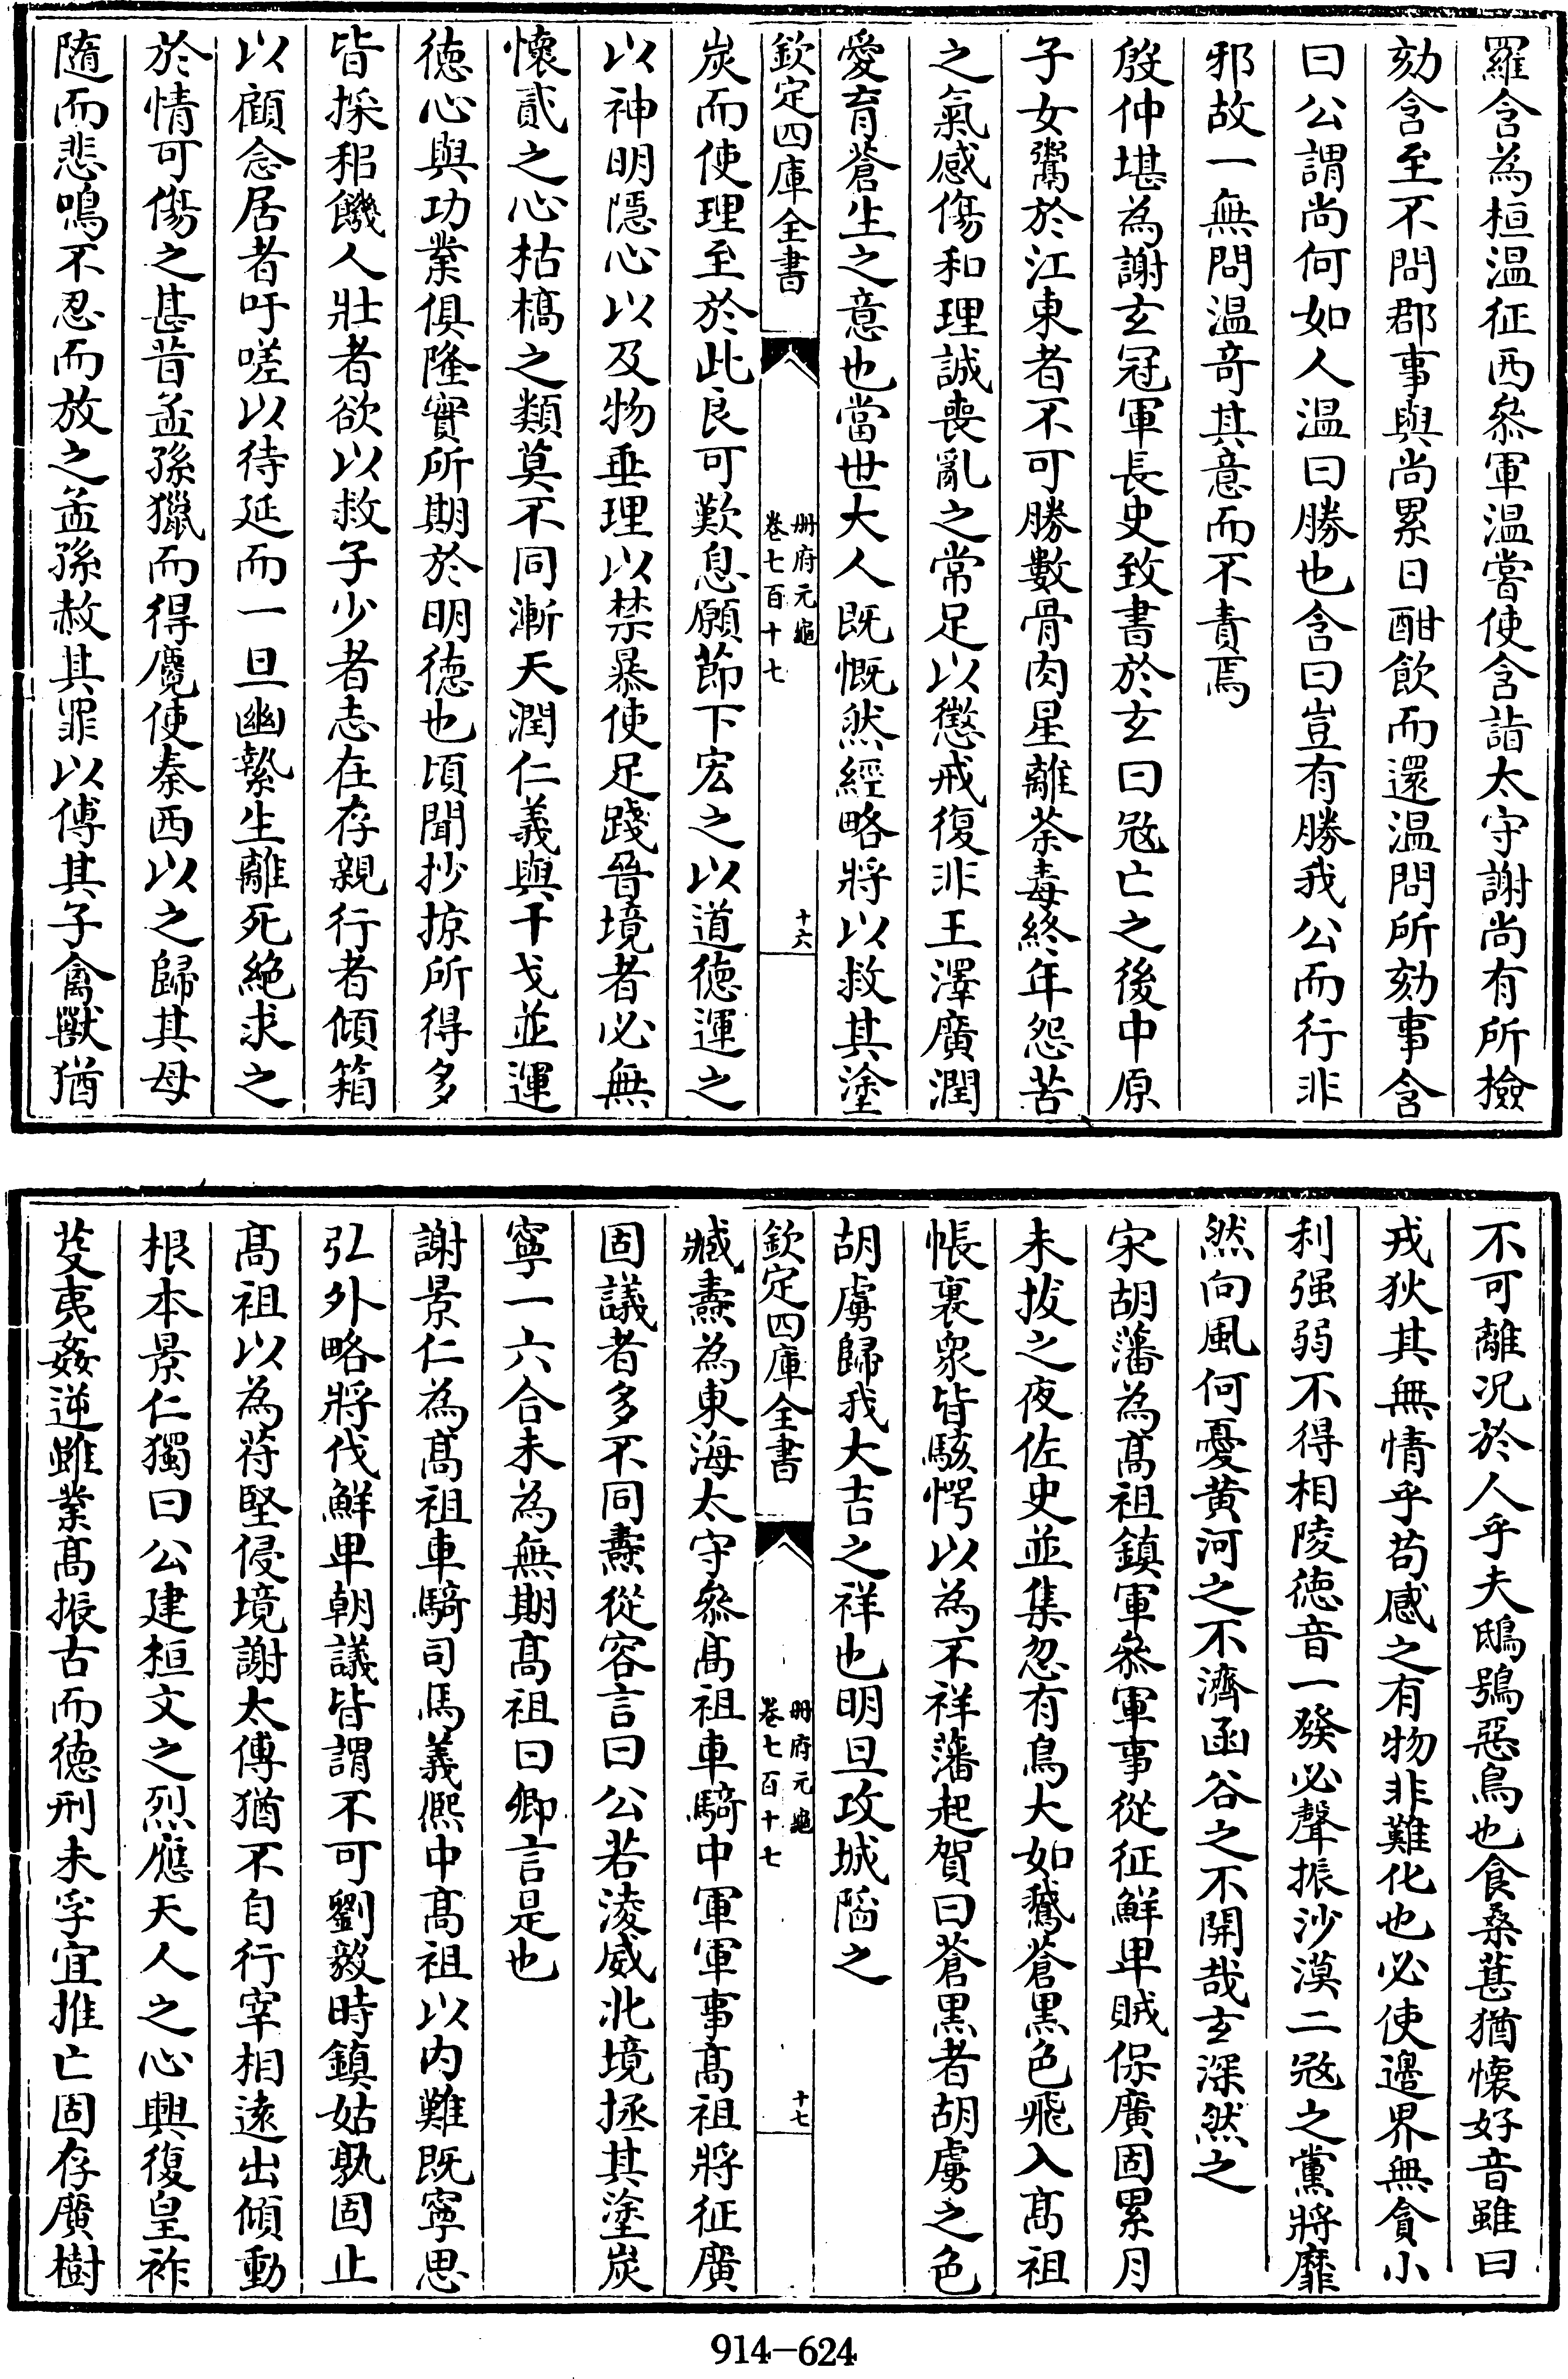 羅含為桓温征西叅軍温嘗使含詣太守謝尚有所檢
劾含至不問郡事與尚累日酣飲而還温問所劾事含
曰公謂尚何如人温曰勝也含曰豈有勝我公而行非
邪故一無問温奇其意而不責焉
殷仲堪為謝玄冠軍長史致書於玄曰冦亡之後中原
子女鬻於江東者不可勝數骨肉星離荼毒終年怨苦
之氣感傷和理誠喪亂之常足以懲戒復非王澤廣潤
愛育蒼生之意也當世大人既慨然經略將以救其塗
欽定四庫全書
冊府元龜
卷七百十七
十六
炭而使理至於此良可歎息願節下宏之以道德運之
以神明隱心以及物垂理以禁暴使足踐晉境者必無
懷貳之心枯槁之類莫不同漸天潤仁義與干戈並運
德心與功業俱隆實所期於明德也頃聞抄掠所得多
皆採稆饑人壯者欲以救子少者志在存親行者傾箱
以顧念居者吁嗟以待延而一旦幽縶生離死絶求之
於情可傷之甚昔孟孫獵而得麑使秦西以之歸其母
隨而悲鳴不忍而放之孟孫赦其罪以傅其子禽獸猶
不可離况於人乎夫鴟鴞惡鳥也食桑葚猶懷好音雖曰
戎狄其無情乎苟感之有物非難化也必使邊界無貪小
利强弱不得相陵德音一發必聲振沙漠二冦之黨將靡
然向風何憂黄河之不濟函谷之不開哉玄深然之
宋胡藩為髙祖鎮軍叅軍事從征鮮卑賊保廣固累月
未拔之夜佐史並集忽有鳥大如鵝蒼黒色飛入髙祖
帳裏衆皆駭愕以為不祥藩起賀曰蒼黒者胡虜之色
胡虜歸我大吉之祥也明旦攻城陷之
欽定四庫全書
冊府元龜
卷七百十七
十七
臧燾為東海太守叅髙祖車騎中軍軍事髙祖將征廣
固議者多不同燾從容言曰公若淩威北境拯其塗炭
寧一六合未為無期髙祖曰卿言是也
謝景仁為髙祖車騎司馬義熈中髙祖以内難既寧思
弘外略將伐鮮卑朝議皆謂不可劉毅時鎮姑孰固止
髙祖以為苻堅侵境謝太傅猶不自行宰相逺出傾動
根本景仁獨曰公建桓文之烈應天人之心興復皇祚
芟夷姦逆雖業髙振古而德刑未孚宜推亡固存廣樹
914-624